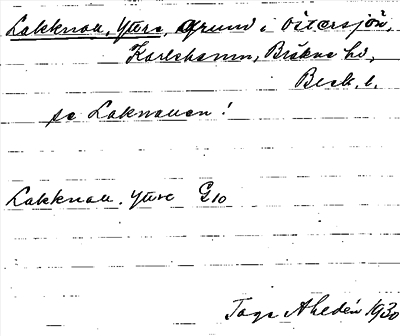 Lakknall, Yttre, Grund i Östersjön,
Karlshamn, Bräkne hd,
Blek. l.
se Laknallen!
Lakknall, Yttre G10
Tage Ahldén 1930